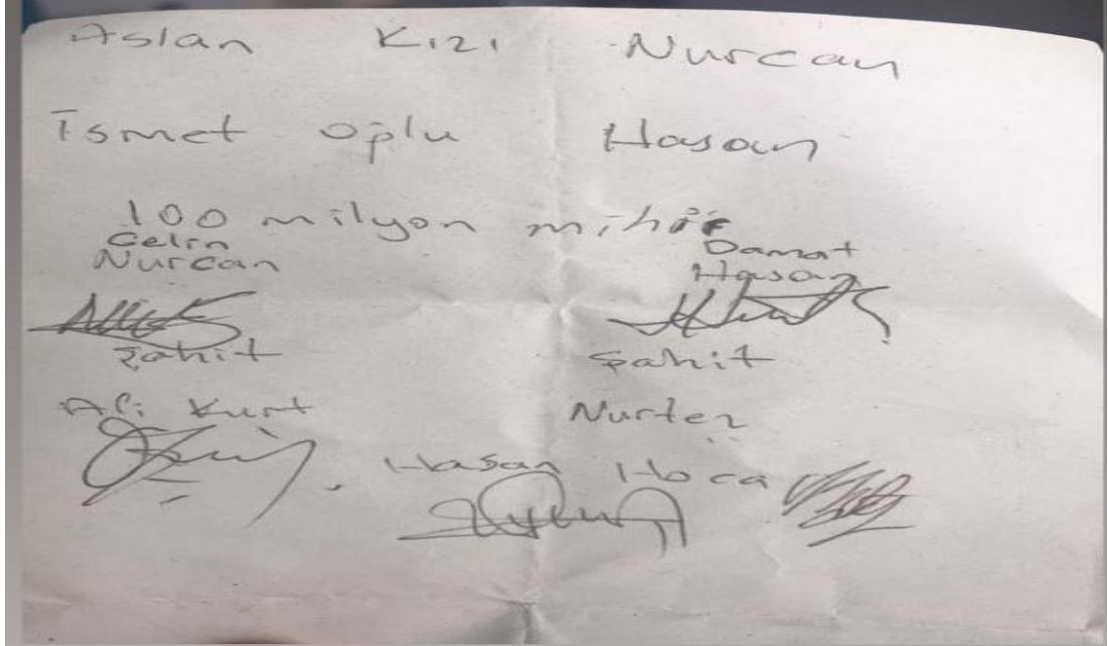 Aslan Kızı Nurcan
İsmet oğlu Hasan
100 milyon mihir
Gelin Damat
Nurcan Hasan
Şahit Şahit
Ali Kurt Nurten
Hasan Hoca